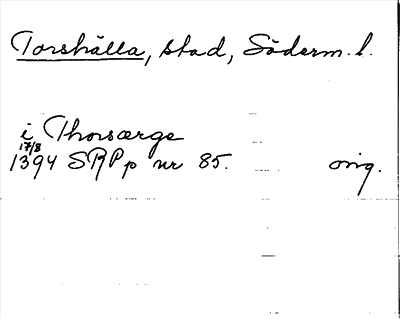 Torshälla, stad, Söderm. l.
i Thorsærge
17/8
1394 SRPp nr 85. orig.